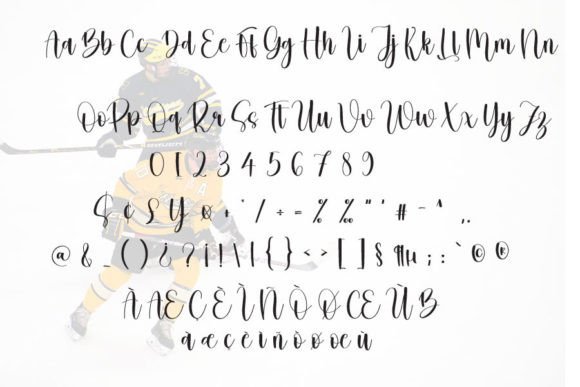 Aa Bb Cc Dd Ee Ff Gg Hh Ii Jj Kk Ll Mm Nn
Oo Pp Qq Rr Ss Tt Uu Vv Ww Xx Yy Zz
0 1 2 3 4 5 6 7 8 9
$ ¢ £ ¥ ¤ + * / ÷ = % ‰ " ' # - ^ , .
@ & ( ) ¿ ? ¡ ! \ | { } < > [ ] § ¶ µ ; : ` © ®
À Æ Ç È Ì Ñ Ò Ø Œ Ù ß
à æ ç è ì ñ ò ø œ ù